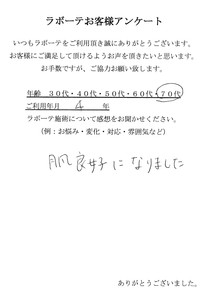 ラボーテお客様アンケート
いつもラボーテをご利用頂き誠にありがとうございます。
お客様にご満足して頂けるようお声を頂きたいと思います。
お手数ですが、ご協力お願い致します。
年齢 30代・40代・50代・60代・70代
ご利用年月 4 年
ラボーテ施術について感想をお聞かせください。
(例:お悩み・変化・対応・雰囲気など)
肌良好になりました
ありがとうございました。